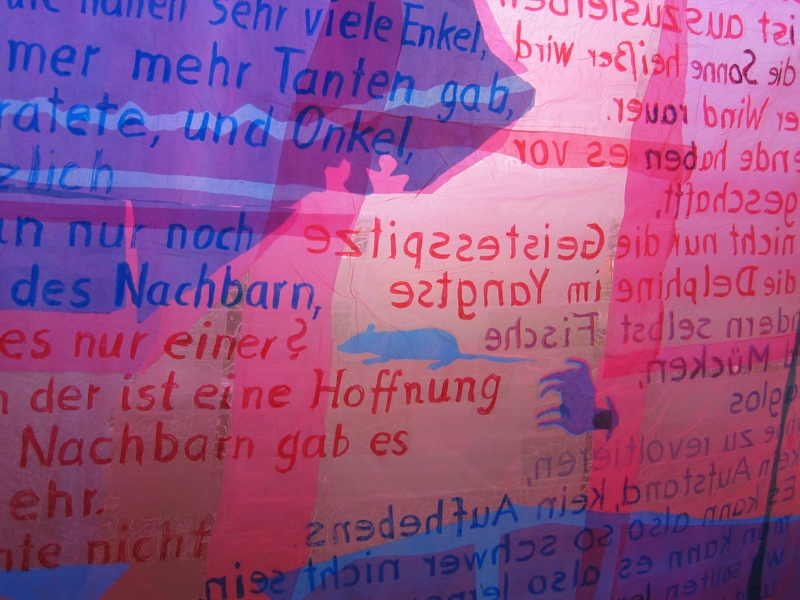 hatten sehr viele Enkel,
mer mehr Tanten gab,
ratete, und Onkel,
zlich
un nur noch
des Nachbarn,
es nur einer?
n der ist eine Hoffnung
Nachbarn gab es
ehr.
nte nicht
ist auszusterben
die Sonne heißer wird
er Wind rauer.
ende haben es vor
geschafft,
nicht nur die Geistesspitze
die Delphine im Yangtse
ndern selbst Fische
Mücken,
aglos
zu revoltieren,
Aufstand, kein Aufhebens
Es kann also so schwer nicht sein,
man kann es also lernen
sollten lernen
und